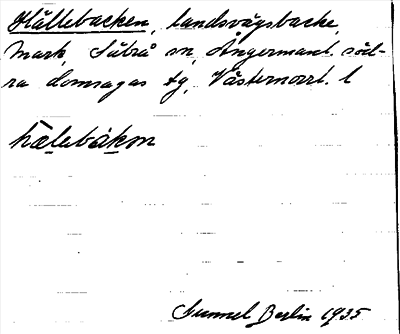 Hällebacken, landsvägsbacke,
Mark, Säbrå sn, Ångermanl. söd-
ra domsagas tg, Västernorrl. l
hælebákɐn
Gunnel Berlin 1935